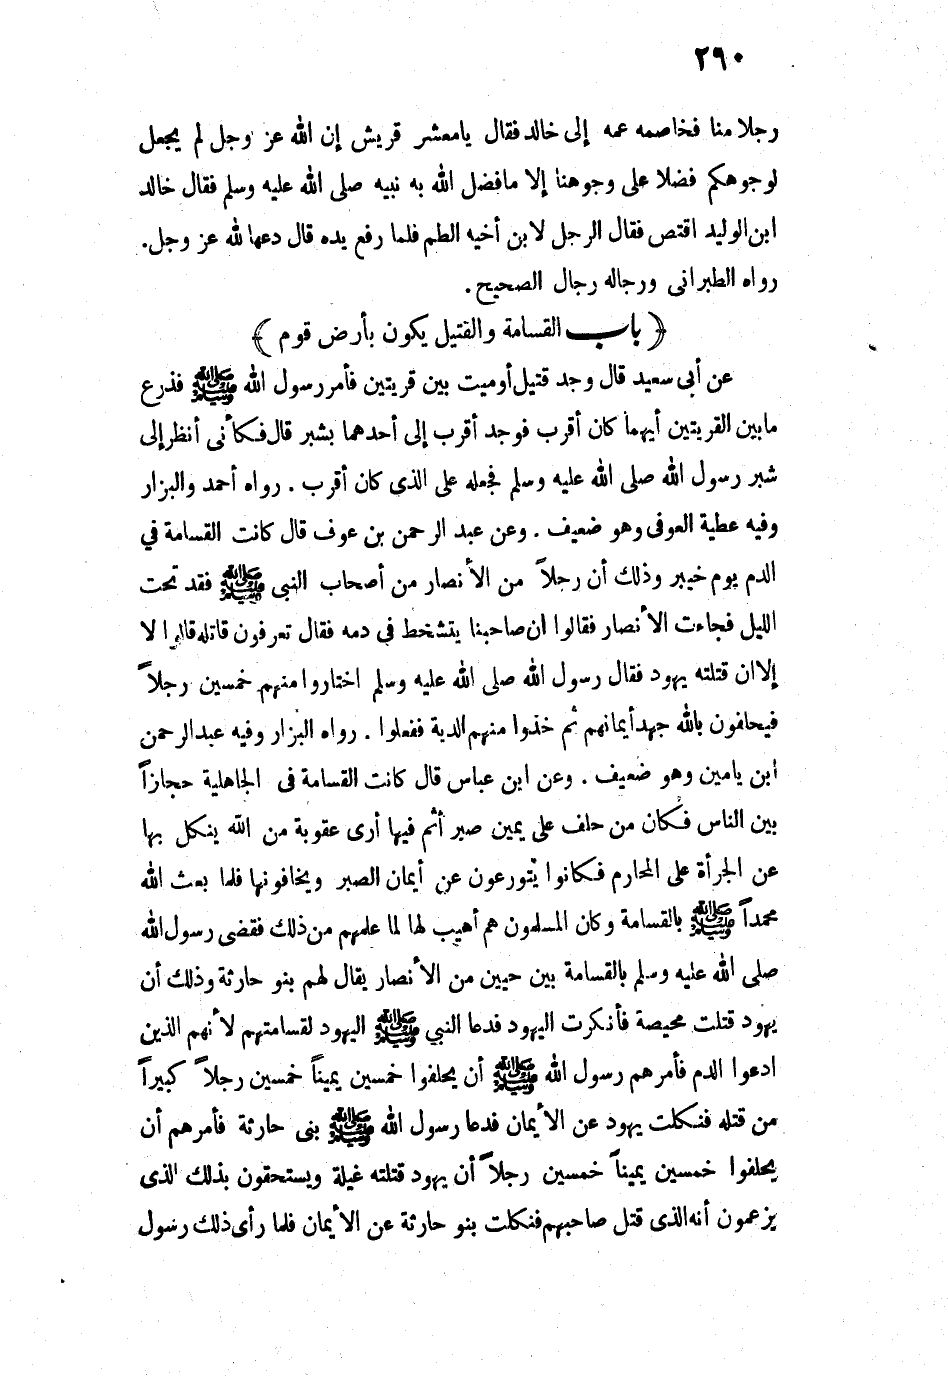 ٢٩٠
رجلا منا فخاصمه عمه إلى خالد فقال يامعشر قريش إن الله عز وجل لم يجعل
لوجوهكم فضلا على وجوهنا إلا مافضل الله به نبيه صلى الله عليه وسلم فقال خالد
ابن الوليد اقتص فقال الرجل لابن أخيه الطم فلما رفع يده قال دعها لله عز وجل.
رواه الطبرانى ورجاله رجال الصحيح.
﴿باب القسامة والقتيل يكون بأرض قوم﴾
عن أبى سعيد قال وجد قتيل أوميت بين قريتين فأمر رسول الله ﷺ فذرع
مابين القريتين أيهما كان أقرب فوجد أقرب إلى أحدهما بشبر قال فكأنى أنظر إلى
شبر رسول الله صلى الله عليه وسلم فجعله على الذى كان أقرب. رواه أحمد والبزار
وفيه عطية العوفى وهو ضعيف. وعن عبد الرحمن بن عوف قال كانت القسامة في
الدم يوم خيبر وذلك أن رجلاً من الأنصار من أصحاب النبى ﷺ فقد تحت
الليل فجاءت الأنصار فقالوا ان صاحبنا يتشخط فى دمه فقال تعرفون قاتله قالوا لا
إلا ان قتلته يهود فقال رسول الله صلى الله عليه وسلم اختاروا منهم خمسين رجلاً
فيحلفون بالله جهد أيمانهم ثم خذوا منهم الدية ففعلوا. رواه البزار وفيه عبد الرحمن
ابن يامين وهو ضعيف. وعن ابن عباس قال كانت القسامة فى الجاهلية حجازاً
بين الناس فكان من حلف على يمين صبر أثم فيها أرى عقوبة من الله ينكل بها
عن الجرأة على المحارم فكانوا يتورعون عن أيمان الصبر ويخافونها فلما بعث الله
محمداً ﷺ بالقسامة وكان المسلمون هم أهيب لها لما علمهم من ذلك فقضى رسول الله
صلى الله عليه وسلم بالقسامة بين حيين من الأنصار يقال لهم بنو حارثة وذلك أن
يهود قتلت محيصة فأنكرت اليهود فدعا النبي ﷺ اليهود لقسامتهم لأنهم الذين
ادعوا الدم فأمرهم رسول الله ﷺ أن يحلفوا خمسين يميناً خمسين رجلاً كبيراً
من قتله فنكلت يهود عن الأيمان فدعا رسول الله ﷺ بنى حارثة فأمرهم أن
يحلفوا خمسين يميناً خمسين رجلاً أن يهود قتلته غيلة ويستحقون بذلك الذى
يزعمون أنه الذى قتل صاحبهم فنكلت بنو حارثة عن الأيمان فلما رأى ذلك رسول